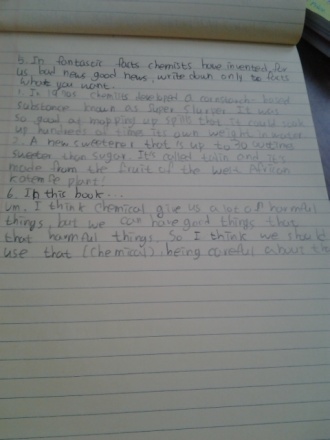 5. In fantastic facts chemists have invented for
us bad news, good news, write down only to facts
what you want.
1. In 1970s chemists developed a cornstarch based
substance known as Super Slurper. It was
so good at mopping up spills that it could
up hundreds of times its own weight in water
2. A new sweeteners that is up to 30 times
sweeter than sugar. It's called talin and it's
made from the fruit of the West African
katemfe plant!
6. In this book...
um, I think chemical give us a lot of harmful
things, but we can have good things that
that harmful things. So I think we should
use that (chemical), being careful about